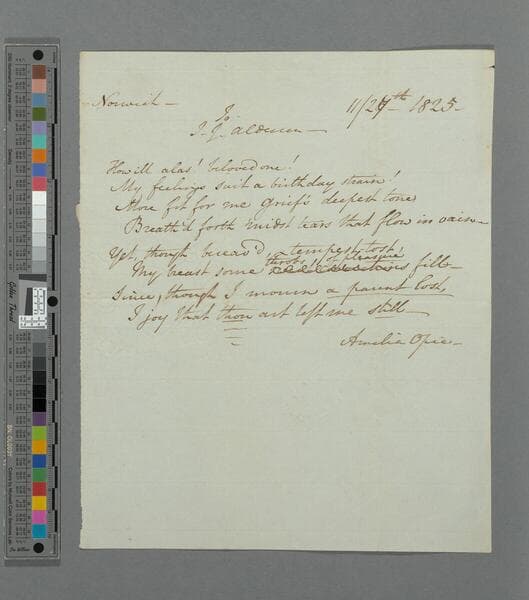 Norwich — 11/27th 1825 —
To
T. J. Alderson —
How ill alas! beloved one!
My feelings suit a birthday strain!
More fit for me grief's deepest tone
Breath'd forth midst tears that flow in vain —
Yet, though bereav'd & tempest-tost!
throbs! of pleasure
My breast some fill —
Since, though I mourn a parent lost,
I joy that thou art left me still —
Amelia Opie —
Golden Thread